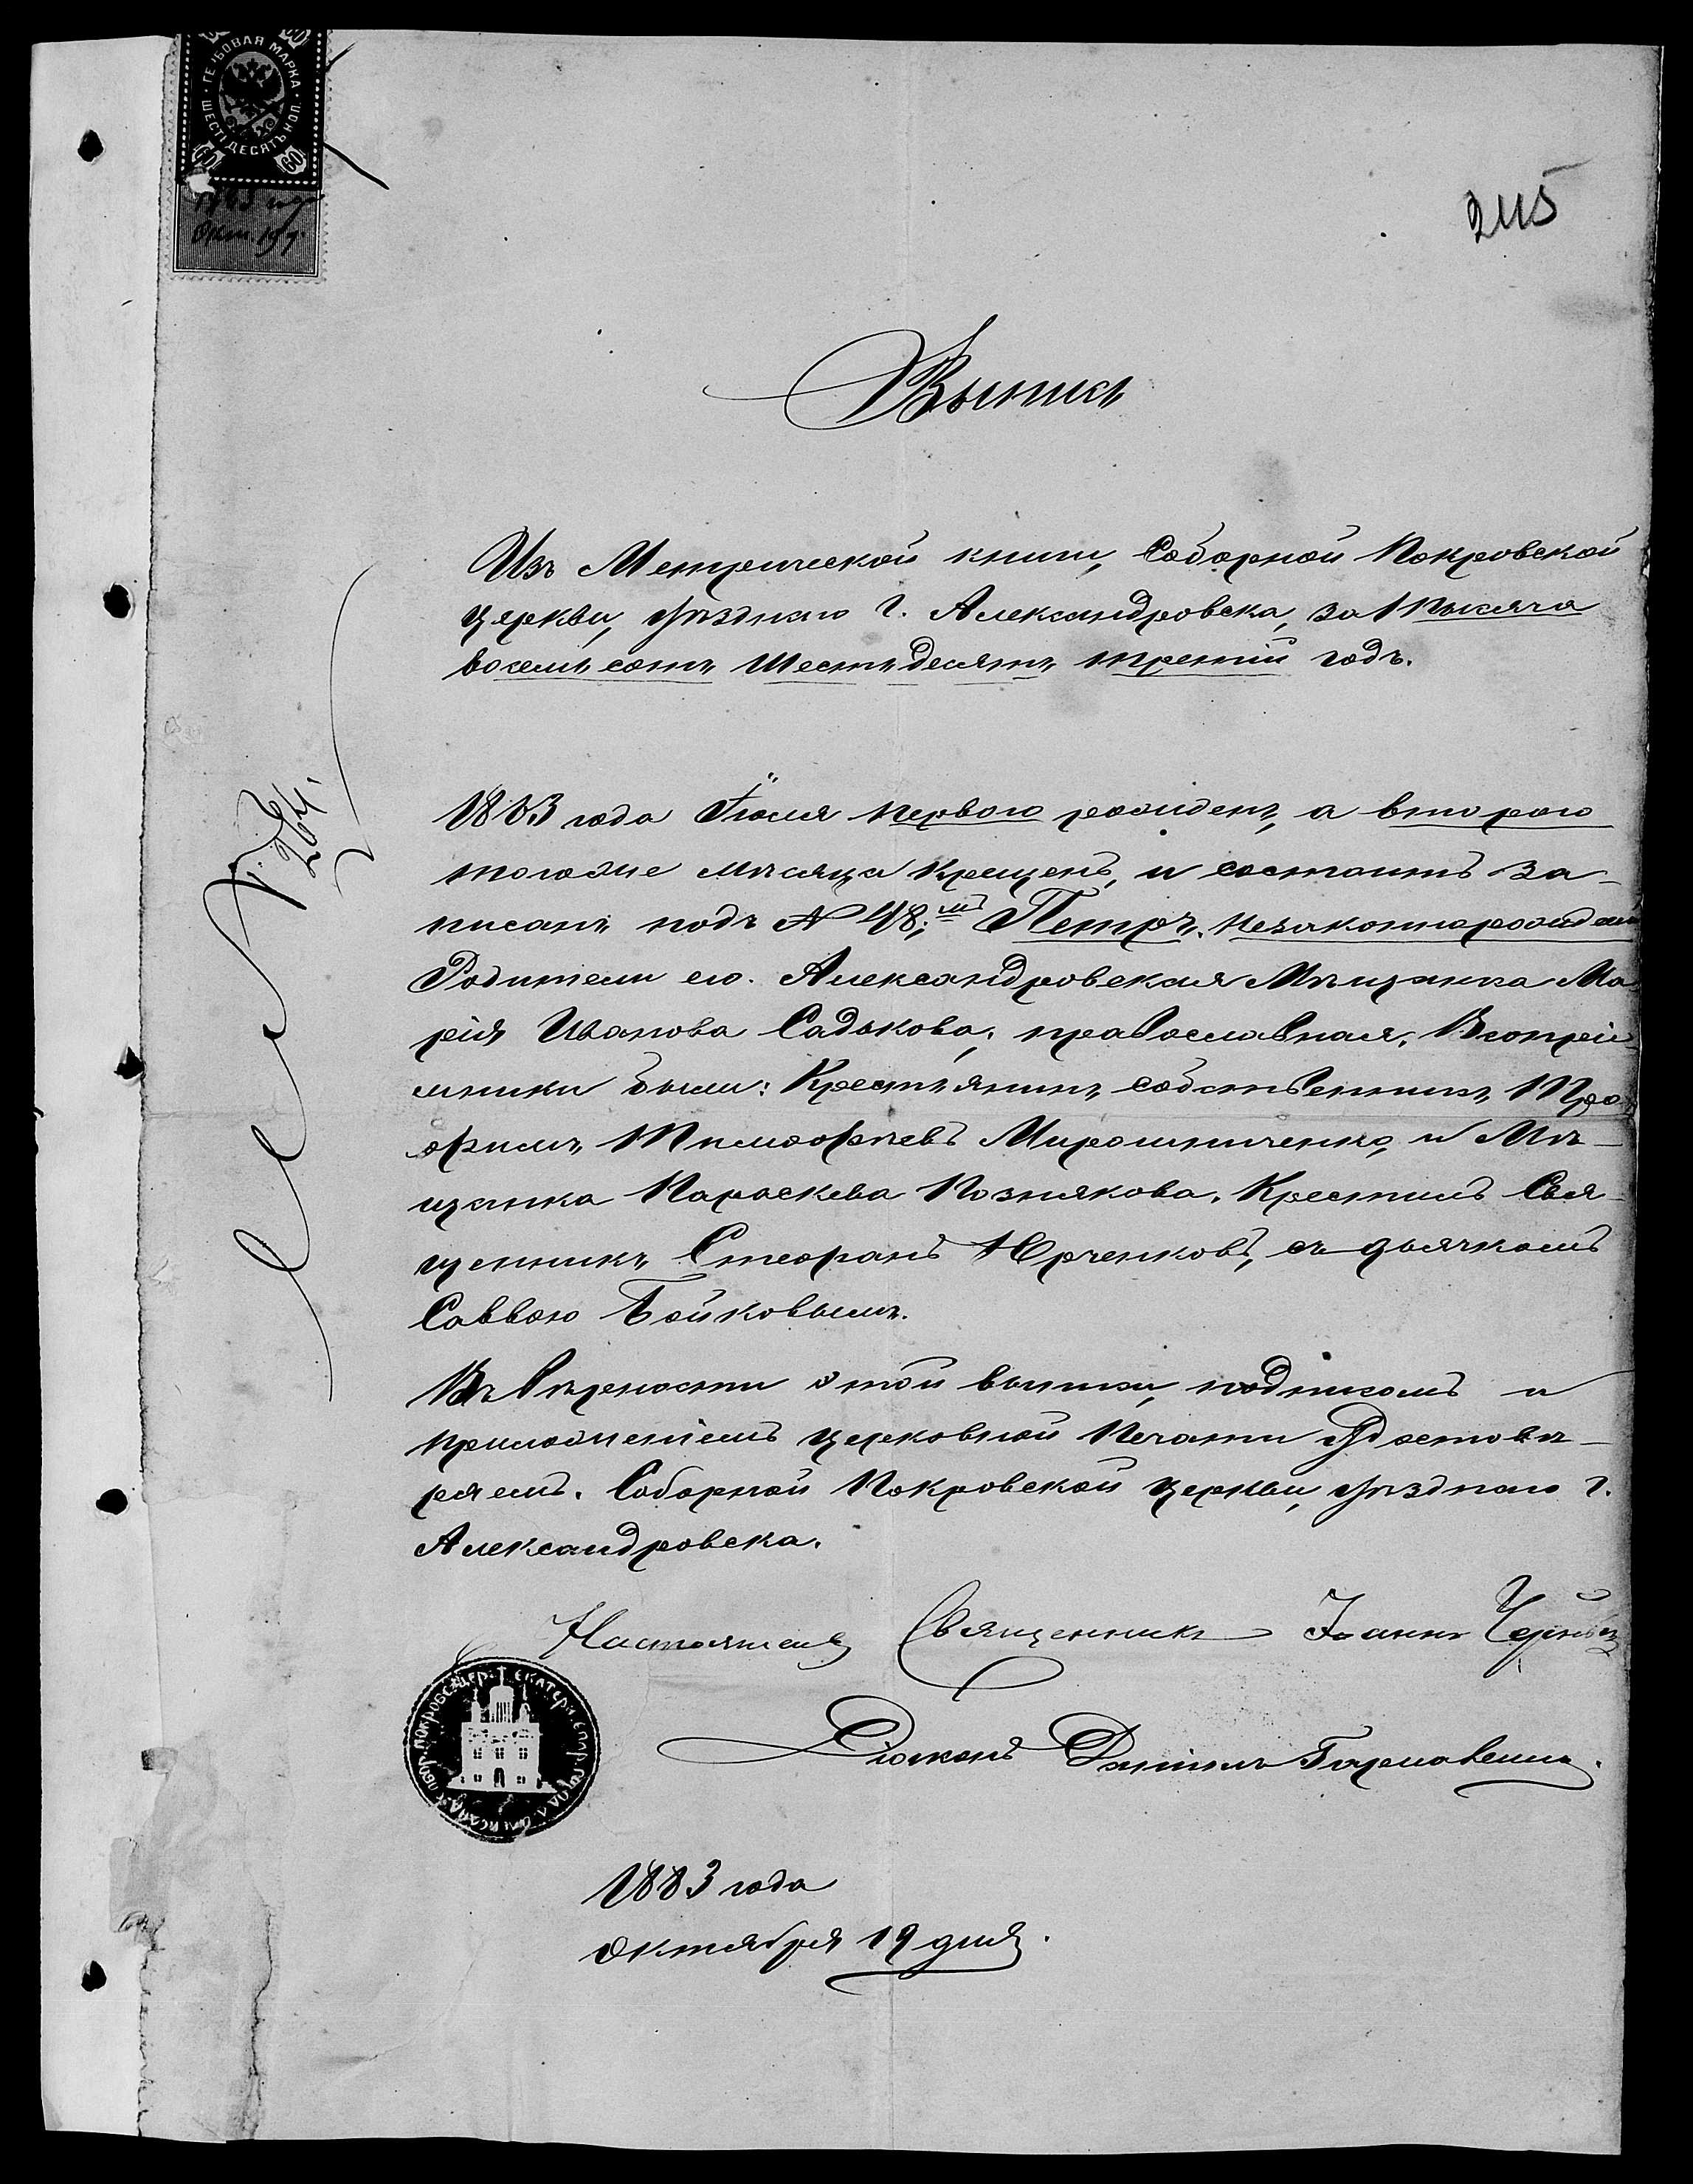 ГЕРБОВАЯ МАРКА
ШЕСТЬДЕСЯТЪ КОП.
60 60
Окт. 19 д.
245
Выпись
Изъ Метрической книги, Соборной Покровской
церкви, уѣзднаго г. Александровска, за Тысяча
восемьсотъ Шестьдесятъ третій годъ.
1863 года Іюля перваго рожденъ, а втораго
тогоже мѣсяца Крещенъ, и состоитъ за-
писанъ подъ № 48;мъ Петръ. незаконнорожден
Родители его. Александровская Мѣщанка Ма
рія Иванова Садыкова; православная. Воспріе-
мники были: Крестьянинъ собственникъ Тро-
фимъ Тимофѣевъ Мирошниченко, и Мѣ-
щанка Параскева Познякова. Крестилъ Свя-
щенникъ Стефанъ Юрченковъ, съ дьячкомъ
Саввою Бойковымъ.
Въ вѣрности этой выписи, подписомъ и
приложеніемъ церковной Печати Удостовѣ-
ряемъ. Соборной Покровской церкви, уѣзднаго г.
Александровска.
Настоятель Священникъ Іоаннъ
Діаконъ
1883 года
Октября 19 дня.